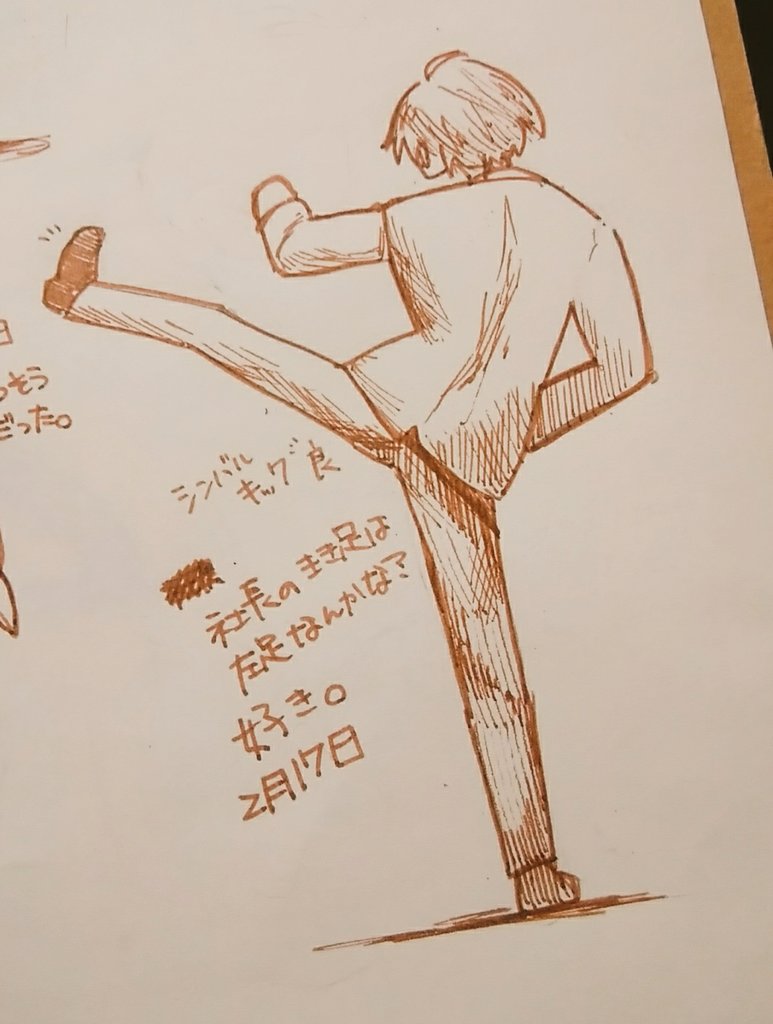 日
っそう
だった。
シンバル
キック゛良
社長のきき足は
左足なんかな?
好き。
2月17日